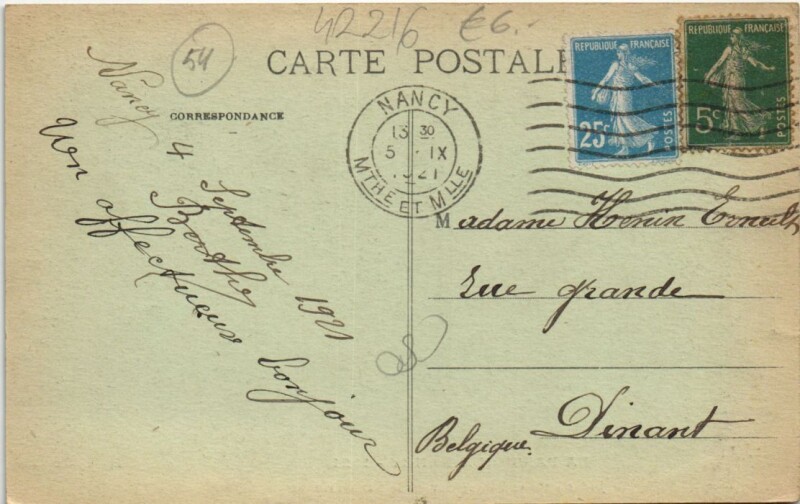 42216 €6.-
54
CARTE POSTALE
CORRESPONDANCE
RÉPUBLIQUE FRANÇAISE
25c
POSTES
RÉPUBLIQUE FRANÇAISE
5c
POSTES
NANCY
13 30
5 - IX
1921
MTHE ET MLLE
Nancy 4 Septembre 1921
Un affectueux bonjour
Berthe
Madame Henin Ernest
Rue grande
Dinant
Belgique.